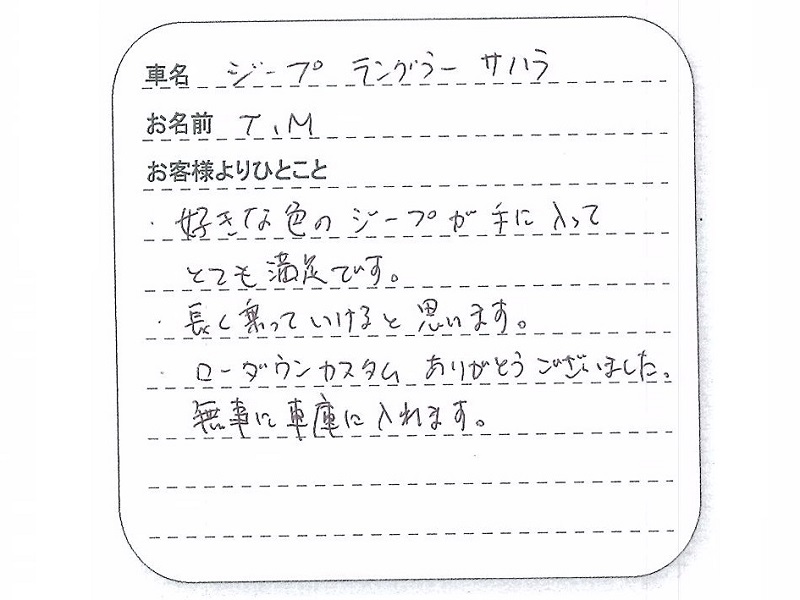 車名 ジープ ラングラー サハラ
お名前 T、M
お客様よりひとこと
・好きな色のジープが手に入って
とても満足です。
・長く乗っていけると思います。
・ローダウンカスタム ありがとうございました。
無事に車庫に入れます。